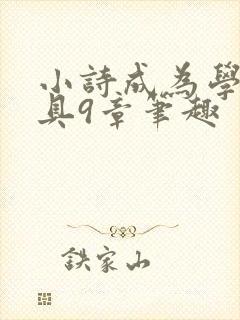 小詩成為學
具9章筆趣
鉄家山